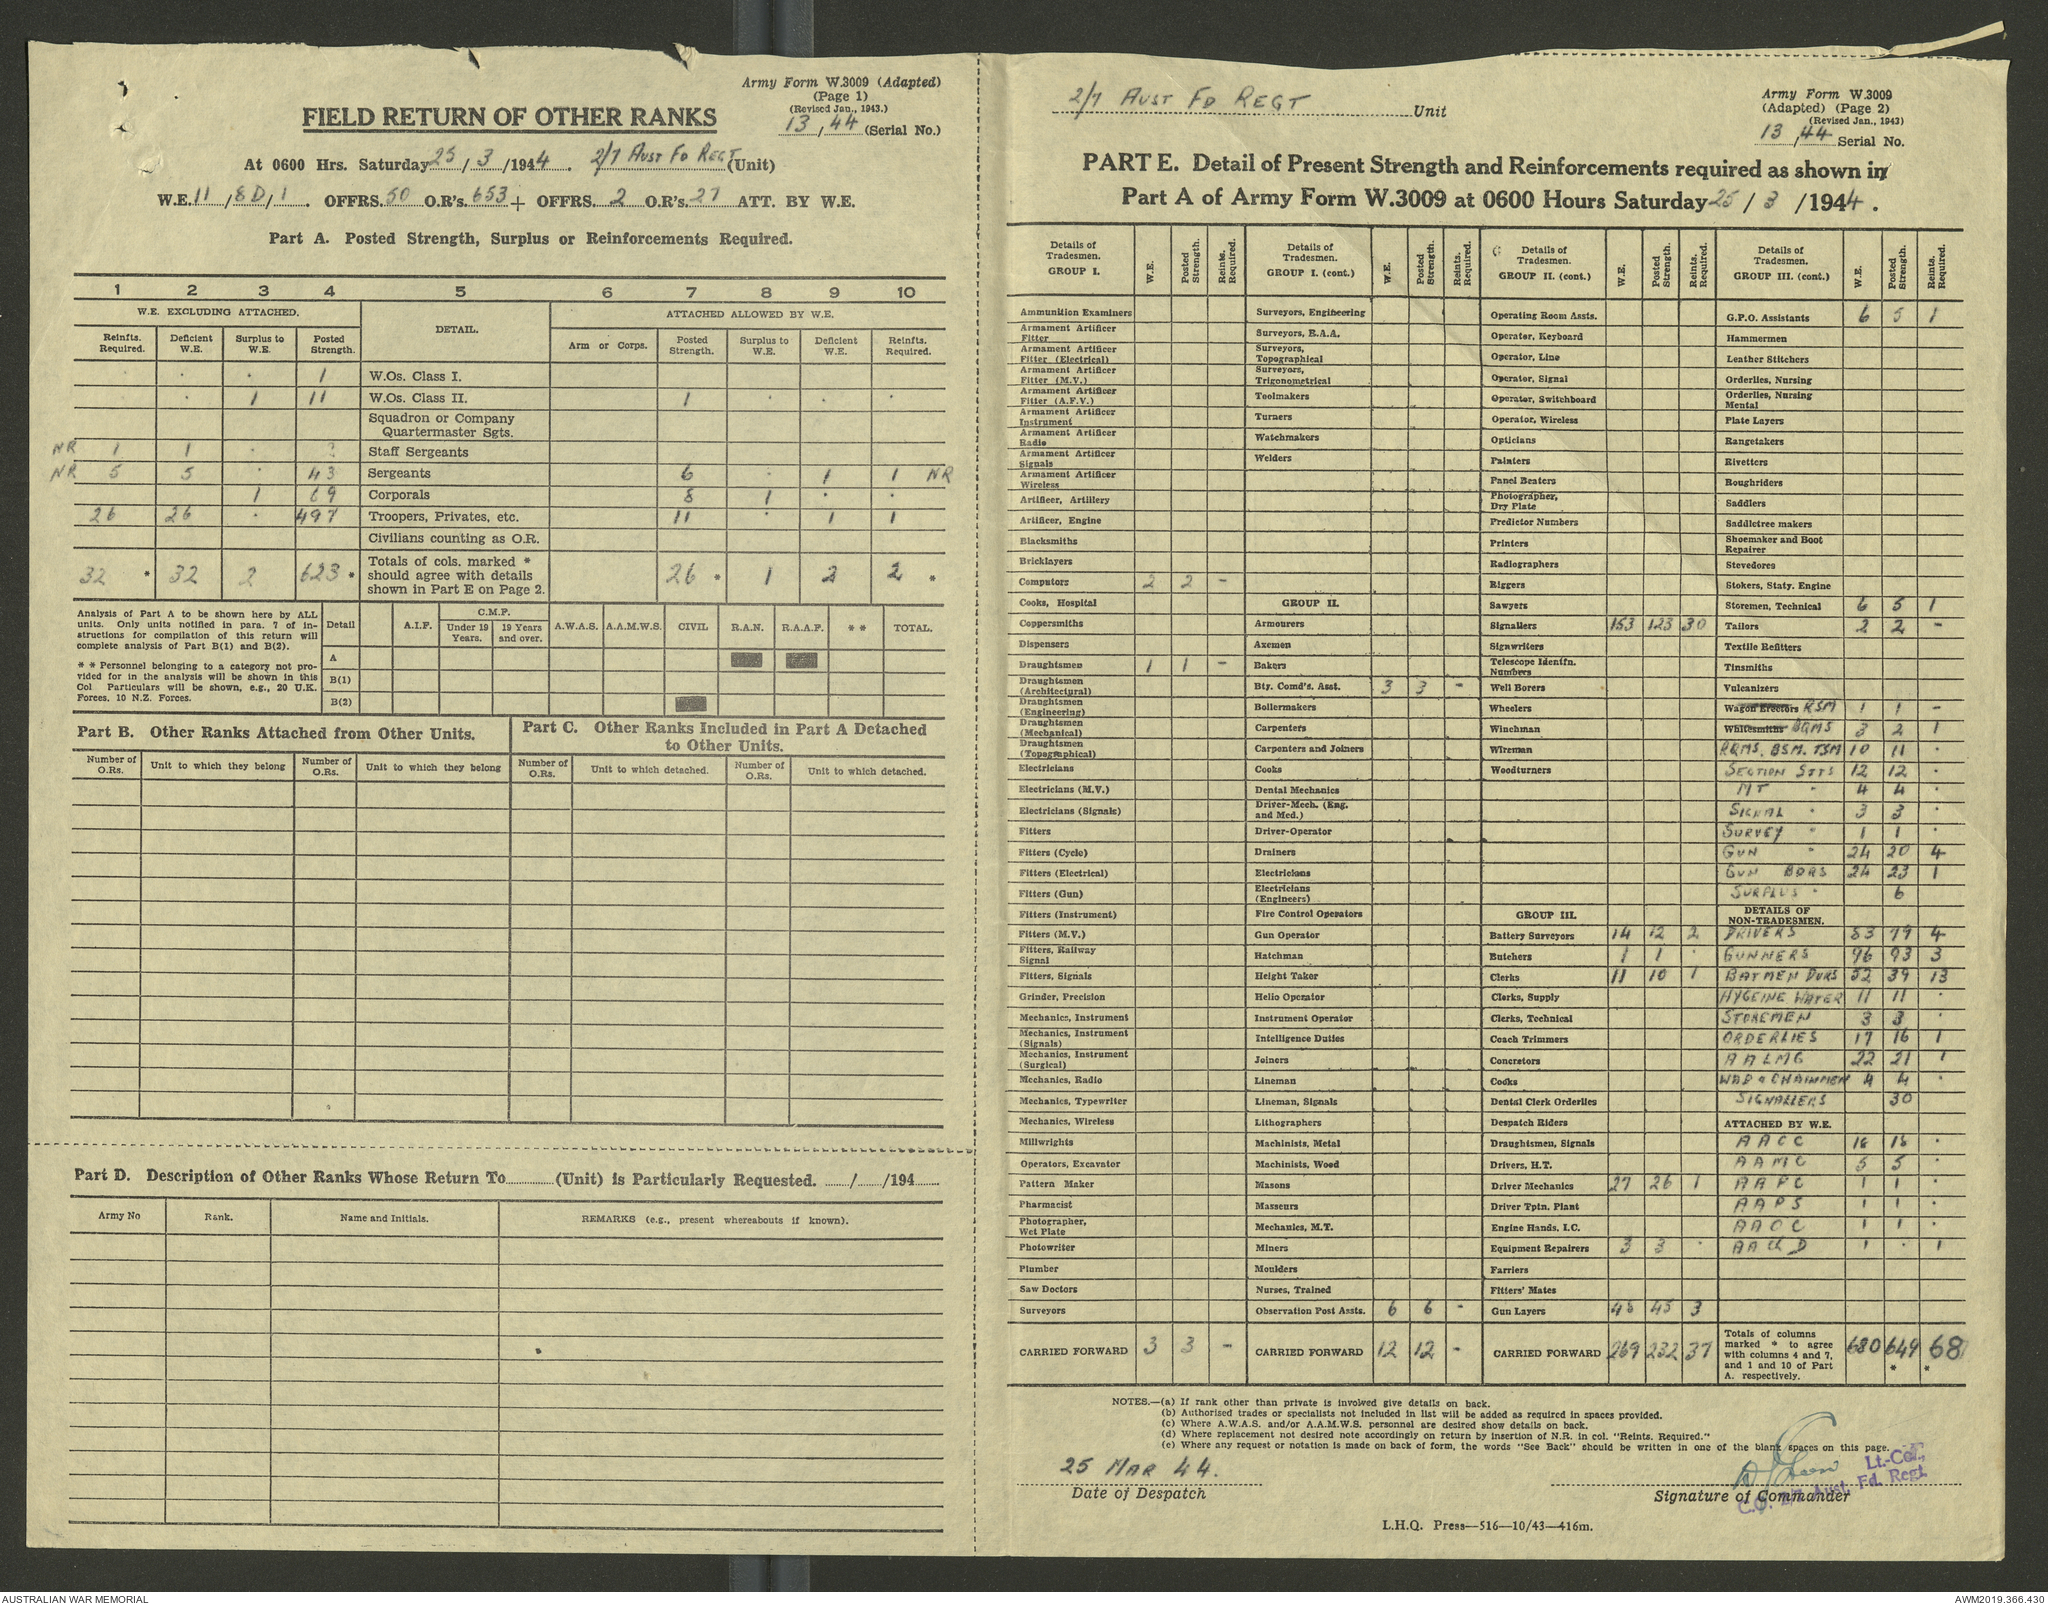 Army Form W.3009 (Adapted)
(Page 1)
(Revised Jan., 1943.)
FIELD RETURN OF OTHER RANKS
13, 44 (Serial No.)
At 0600 Hrs. Saturday 25/3/1944. 2/7 AUST FD REGT (Unit)
W.E. 11/8D/1. OFFRS. 50 O.R's. 653 + OFFRS. 2 O.R's. 27 ATT. BY W.E.
Part A. Posted Strength, Surplus or Reinforcements Required.
1 2 3 4 5 6 7 8 9 10
W.E. EXCLUDING ATTACHED. DETAIL. ATTACHED ALLOWED BY W.E.
Reinfts. Required. Deficient W.E. Surplus to W.E. Posted Strength. Arm or Corps. Posted Strength. Surplus to W.E. Deficient W.E. Reinfts. Required.
. . . 1 W.Os. Class I.
. 1 11 W.Os. Class II. 1 . . .
Squadron or Company Quartermaster Sgts.
NR 1 1 . Staff Sergeants
NR 5 5 . 43 Sergeants 6 . 1 1 NR
1 69 Corporals 8 1 . .
26 26 . 497 Troopers, Privates, etc. 11 . 1 1
Civilians counting as O.R.
32 * 32 2 623 * Totals of cols. marked * should agree with details shown in Part E on Page 2. 26 * 1 2 2 *
Analysis of Part A to be shown here by ALL
units. Only units notified in para. 7 of in-
structions for compilation of this return will
complete analysis of Part B(1) and B(2).
* * Personnel belonging to a category not pro-
vided for in the analysis will be shown in this
Col Particulars will be shown, e.g., 20 U.K.
Forces, 10 N.Z. Forces.
Detail A.I.F. C.M.F. Under 19 Years. 19 Years and over. A.W.A.S. A.A.M.W.S. CIVIL R.A.N. R.A.A.F. * * TOTAL.
A
B(1)
B(2)
Part B. Other Ranks Attached from Other Units.
Part C. Other Ranks Included in Part A Detached
to Other Units.
Number of O.Rs. Unit to which they belong Number of O.Rs. Unit to which they belong Number of O.Rs. Unit to which detached. Number of O.Rs. Unit to which detached.
Part D. Description of Other Ranks Whose Return To............(Unit) is Particularly Requested. ....../....../194......
Army No Rank. Name and Initials. REMARKS (e.g., present whereabouts if known).
2/7 AUST FD REGT Unit
Army Form W.3009
(Adapted) (Page 2)
(Revised Jan., 1943)
13, 44 Serial No.
PART E. Detail of Present Strength and Reinforcements required as shown in
Part A of Army Form W.3009 at 0600 Hours Saturday 25/3/1944.
Details of Tradesmen. GROUP I. W.E. Posted Strength. Reints. Required.
Ammunition Examiners
Armament Artificer Fitter
Armament Artificer Fitter (Electrical)
Armament Artificer Fitter (M.V.)
Armament Artificer Fitter (A.F.V.)
Armament Artificer Instrument
Armament Artificer Radio
Armament Artificer Signals
Armament Artificer Wireless
Artificer, Artillery
Artificer, Engine
Blacksmiths
Bricklayers
Computors 2 2 -
Cooks, Hospital
Coppersmiths
Dispensers
Draughtsmen 1 1 -
Draughtsmen (Architectural)
Draughtsmen (Engineering)
Draughtsmen (Mechanical)
Draughtsmen (Topographical)
Electricians
Electricians (M.V.)
Electricians (Signals)
Fitters
Fitters (Cycle)
Fitters (Electrical)
Fitters (Gun)
Fitters (Instrument)
Fitters (M.V.)
Fitters, Railway Signal
Fitters, Signals
Grinder, Precision
Mechanics, Instrument
Mechanics, Instrument (Signals)
Mechanics, Instrument (Surgical)
Mechanics, Radio
Mechanics, Typewriter
Mechanics, Wireless
Millwrights
Operators, Excavator
Pattern Maker
Pharmacist
Photographer, Wet Plate
Photowriter
Plumber
Saw Doctors
Surveyors
CARRIED FORWARD 3 3 -
Details of Tradesmen. GROUP I. (cont.) W.E. Posted Strength. Reints. Required.
Surveyors, Engineering
Surveyors, R.A.A.
Surveyors, Topographical
Surveyors, Trigonometrical
Toolmakers
Turners
Watchmakers
Welders
GROUP II.
Armourers
Axemen
Bakers
Bty. Comd's. Asst. 3 3 -
Boilermakers
Carpenters
Carpenters and Joiners
Cooks
Dental Mechanics
Driver-Mech. (Eng. and Med.)
Driver-Operator
Drainers
Electricians
Electricians (Engineers)
Fire Control Operators
Gun Operator
Hatchman
Height Taker
Helio Operator
Instrument Operator
Intelligence Duties
Joiners
Lineman
Lineman, Signals
Lithographers
Machinists, Metal
Machinists, Wood
Masons
Masseurs
Mechanics, M.T.
Miners
Moulders
Nurses, Trained
Observation Post Assts. 6 6 -
CARRIED FORWARD 12 12 -
Details of Tradesmen. GROUP II. (cont.) W.E. Posted Strength. Reints. Required.
Operating Room Assts.
Operator, Keyboard
Operator, Line
Operator, Signal
Operator, Switchboard
Operator, Wireless
Opticians
Painters
Panel Beaters
Photographer, Dry Plate
Predictor Numbers
Printers
Radiographers
Riggers
Sawyers
Signallers 153 123 30
Signwriters
Telescope Identfn. Numbers
Well Borers
Wheelers
Winchman
Wireman
Woodturners
GROUP III.
Battery Surveyors 14 12 2
Butchers 1 1 .
Clerks 11 10 1
Clerks, Supply
Clerks, Technical
Coach Trimmers
Concretors
Cooks
Dental Clerk Orderlies
Despatch Riders
Draughtsmen, Signals
Drivers, H.T.
Driver Mechanics 27 26 1
Driver Tptn. Plant
Engine Hands, I.C.
Equipment Repairers 3 3 .
Farriers
Fitters' Mates
Gun Layers 48 45 3
CARRIED FORWARD 269 232 37
Details of Tradesmen. GROUP III. (cont.) W.E. Posted Strength. Reints. Required.
G.P.O. Assistants 6 5 1
Hammermen
Leather Stitchers
Orderlies, Nursing
Orderlies, Nursing Mental
Plate Layers
Rangetakers
Rivetters
Roughriders
Saddlers
Saddletree makers
Shoemaker and Boot Repairer
Stevedores
Stokers, Staty. Engine
Storemen, Technical 6 5 1
Tailors 2 2 -
Textile Refitters
Tinsmiths
Vulcanizers
Wagon Erectors RSM 1 1 -
Whitesmiths BQMS 3 2 1
RQMS. BSM. TSM 10 11 .
SECTION SJTS 12 12 .
MT " 4 4 .
SIGNAL " 3 3 .
SURVEY " 1 1 .
GUN " 24 20 4
GUN BDRS 24 23 1
SURPLUS " 6
DETAILS OF NON-TRADESMEN.
DRIVERS 83 79 4
GUNNERS 96 93 3
BATMEN DVRS 52 39 13
HYGEINE WATER 11 11 .
STOREMEN 3 3 .
ORDERLIES 17 16 1
AALMG 22 21 1
CHAINMEN 4 4 .
SIGNALLERS 30
ATTACHED BY W.E.
AACC 18 18 .
AAMC 5 5 .
AAPC 1 1 .
AAPS 1 1 .
AAOC 1 1 .
AACHD 1 . 1
Totals of columns marked * to agree with columns 4 and 7, and 1 and 10 of Part A. respectively. 680 649 * 68 *
NOTES.—(a) If rank other than private is involved give details on back.
(b) Authorised trades or specialists not included in list will be added as required in spaces provided.
(c) Where A.W.A.S. and/or A.A.M.W.S. personnel are desired show details on back.
(d) Where replacement not desired note accordingly on return by insertion of N.R. in col. "Reints. Required."
(e) Where any request or notation is made on back of form, the words "See Back" should be written in one of the blank spaces on this page.
25 MAR 44.
Date of Despatch
Lt.-Col.,
C.O. 2/7 Aust. Fd. Regt.
Signature of Commander
L.H.Q. Press—516—10/43—416m.
AUSTRALIAN WAR MEMORIAL
AWM2019.366.430